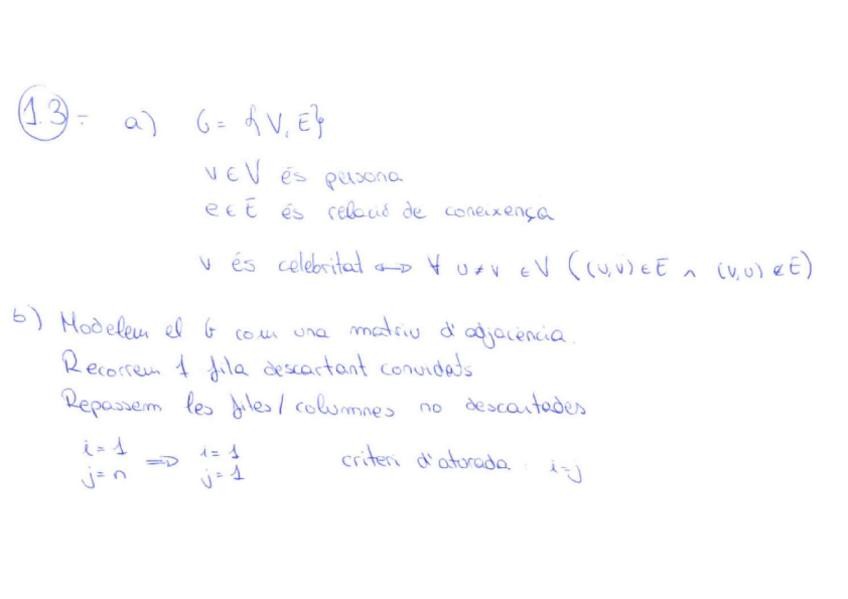 1.3 - a) G = {V, E}
v ∈ V és persona
e ∈ E és relació de coneixença
v és celebritat ⟺ ∀ u ≠ v ∈ V ((u,v) ∈ E ∧ (v,u) ∉ E)
b) Modelem el G com una matriu d'adjacència.
Recorrem 1 fila descartant convidats
Repassem les files/columnes no descartades
i = 1 ⟹ i = 1 criteri d'aturada : i=j
j = n j = 1